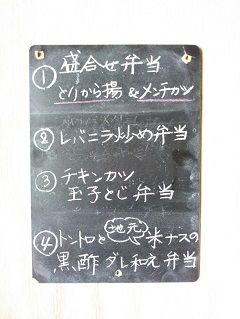 ① 盛合せ弁当
とりから揚&メンチカツ
② レバニラ炒め弁当
③ チキンカツ
玉子とじ弁当
④ トントロと地元米ナスの
黒酢ダレ和え弁当